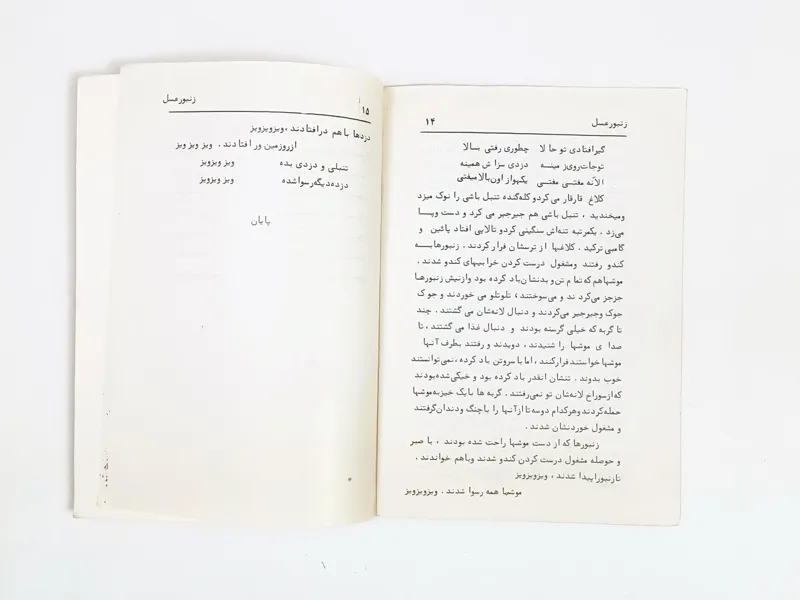 زنبورعسل ۱۴
گیرافتادی تو حا لا چطوری رفتی بـالا
توجات‌روی‌ز مینـــه دزدی سزا ش همینه
الانّه مفتـــی مفتـــی یکهواز اون‌بالامیفتی
کلاغ قارقار می‌کردو کله‌گنده تنبل باشی را نوک میزد
ومیخندید ، تنبل باشی هم جیرجیر می کرد و دست وپـــا
می‌زد . یکمرتبه تنه‌اش سنگینی کردو تالاپی افتاد پائین و
گامبی ترکید . کلاغها از ترسشان فرار کردند . زنبورهابـــه
کندو رفتند ومشغول درست کردن خرا بیهای کندو شدند .
موشهاهم‌که تما م تن‌و بدنشان‌باد کرده بود وازنیش زنبورهـا
جزجز می‌کرد ند و می‌سوختند ، تلوتلو می خوردند و جو ک
جوک وجیرجیر می‌کردند و دنبال لانه‌شان می گشتند . چند
تا گربه که خیلی گرسنه بودند و دنبال غذا می گشتند ، تا
صدا ی موشها را شنیدند ، دویدند و رفتند بطرف آنهـا
موشهاخواستندفرارکنند ، اماباسروتن باد کرده ،نمی‌توانستند
خوب بدوند . تنشان آنقدر باد کرده بود و خیکی‌شده‌بودند
که‌ازسوراخ لانه‌شان تو نمی‌رفتند . گربه ها بایک خیزبه‌موشها
حمله‌کردندوهرکدام دوسه‌تا‌ازآنها را باچنگ ودندان‌گرفتند
و مشغول خوردنشان شدند .
زنبورها که از دست موشها راحت شده بودند ، با صبر
و حوصله مشغول درست کردن کندو شدند وباهم خواندند .
تازنبوراپیدا شدند ، ویزویزویز
موشها همه رسوا شدند . ویزویزویز
زنبورعسل ۱۵
دزدها باهم درافتادند ،ویزویزویز
ازروزمین ور افتادند . ویز ویز ویز
تنبلی و دزدی بده ویز ویزویز
دزده‌دیگه‌رسواشده ویز ویزویز
پایان